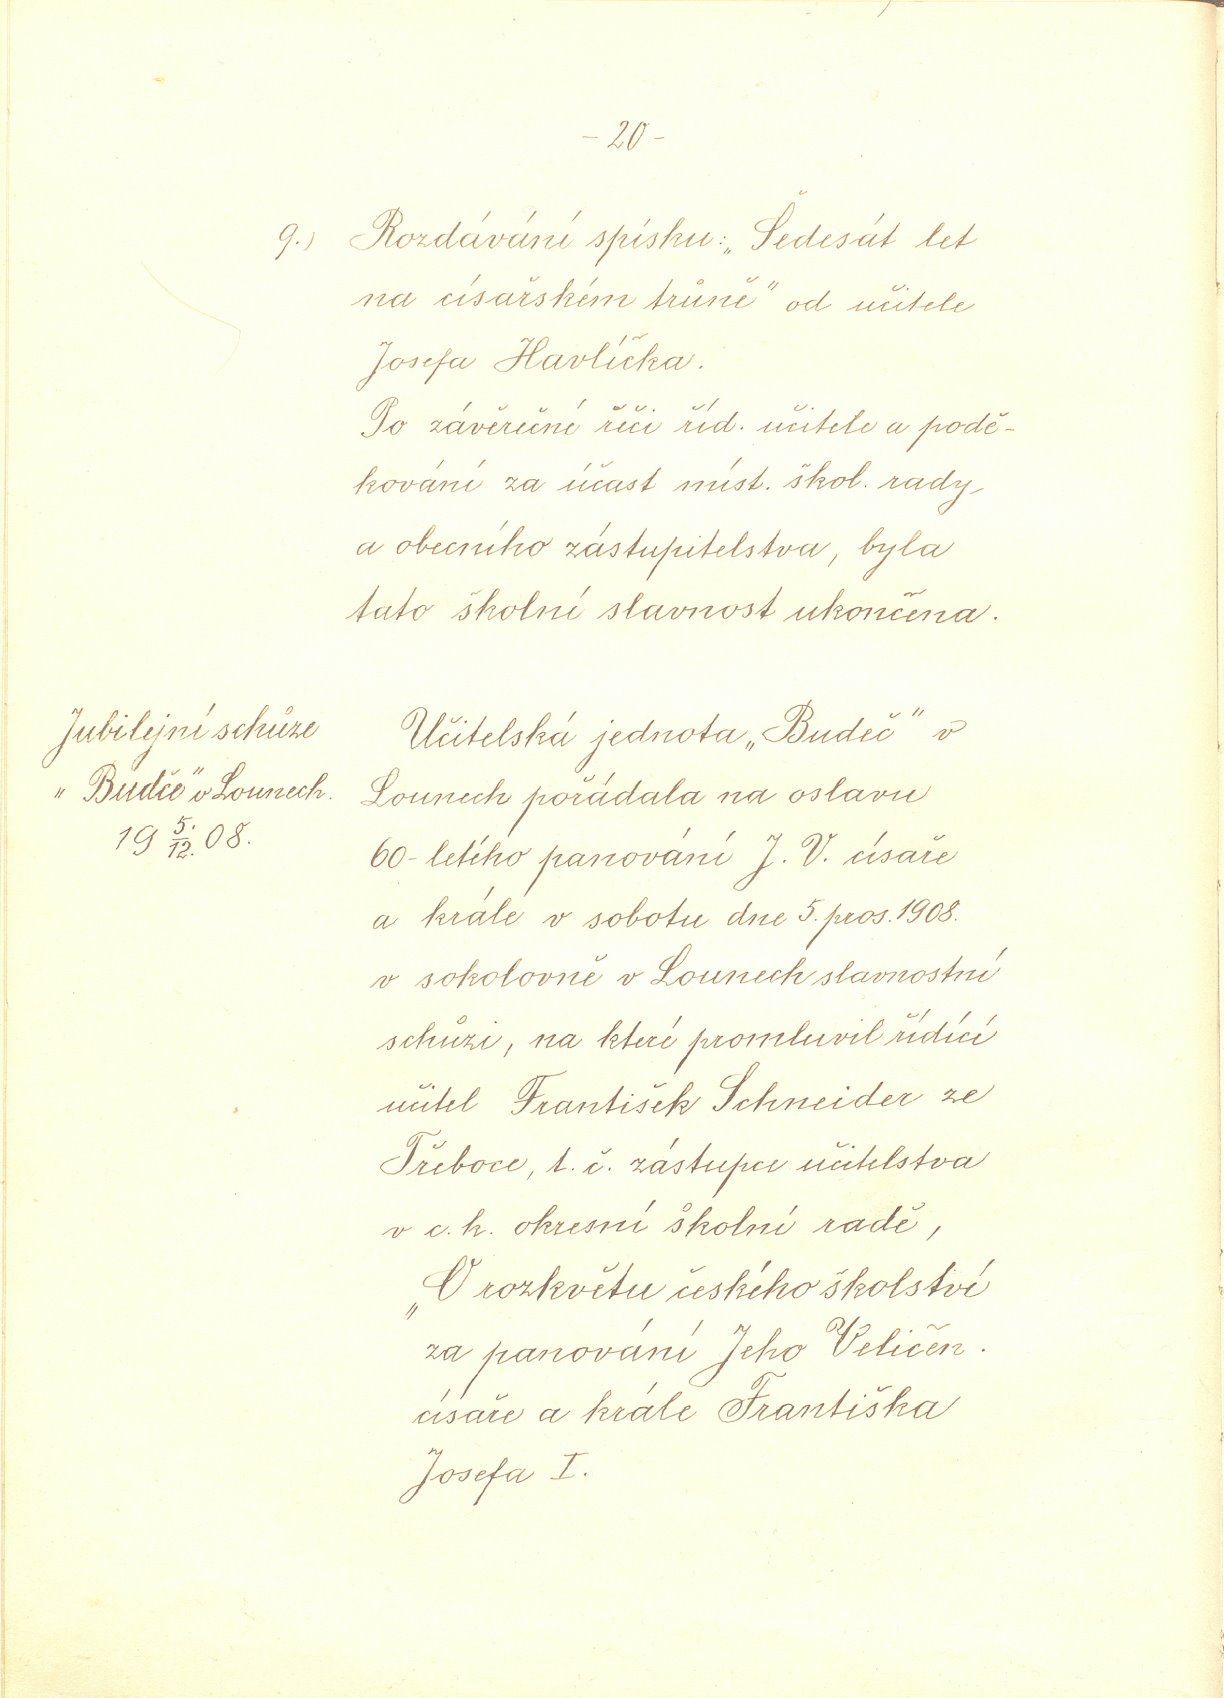 - 20 -
9.) Rozdávání spisku: „Šedesát let
na císařském trůně" od učitele
Josefa Havlíčka.
Po závěrečné řeči říd. učitele a podě-
kování za účast míst. škol. rady
a obecního zástupitelstva, byla
tato školní slavnost ukončena.
Jubilejní schůze
„Budče" v Lounech.
19 5./12. 08.
Učitelská jednota „Budeč" v
Lounech pořádala na oslavu
60-letého panování J. V. císaře
a krále v sobotu dne 5. pros. 1908.
v sokolovně v Lounech slavnostní
schůzi, na které promluvil řídící
učitel František Schneider ze
Třeboce, t. č. zástupce učitelstva
v c. k. okresní školní radě,
„O rozkvětu českého školství
za panování Jeho Veličen.
císaře a krále Františka
Josefa I.